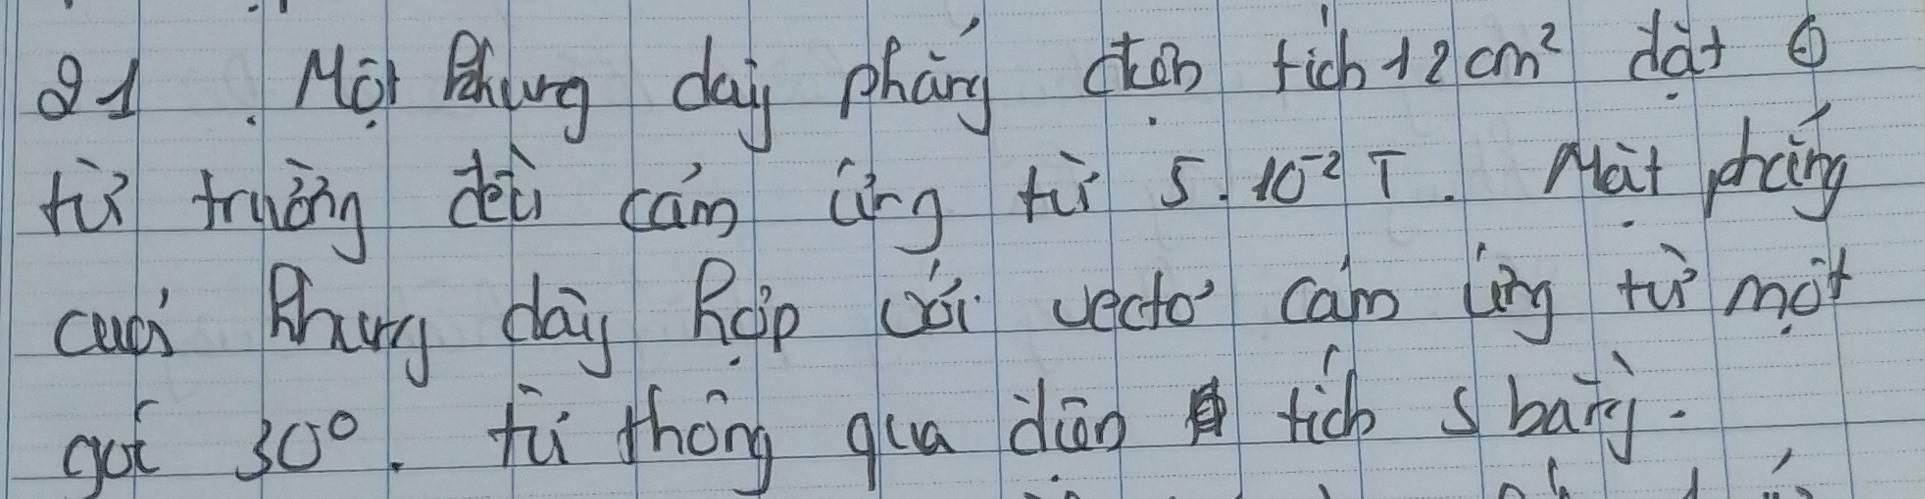 21. Một khung dây phẳng diện tích 12 cm² đặt ở
từ trường đều cảm ứng từ 5.10⁻² T. Mặt phẳng
cuả khung dây hợp với vectơ cảm ứng từ một
góc 30⁰. từ thông qua diện tích S bằng.